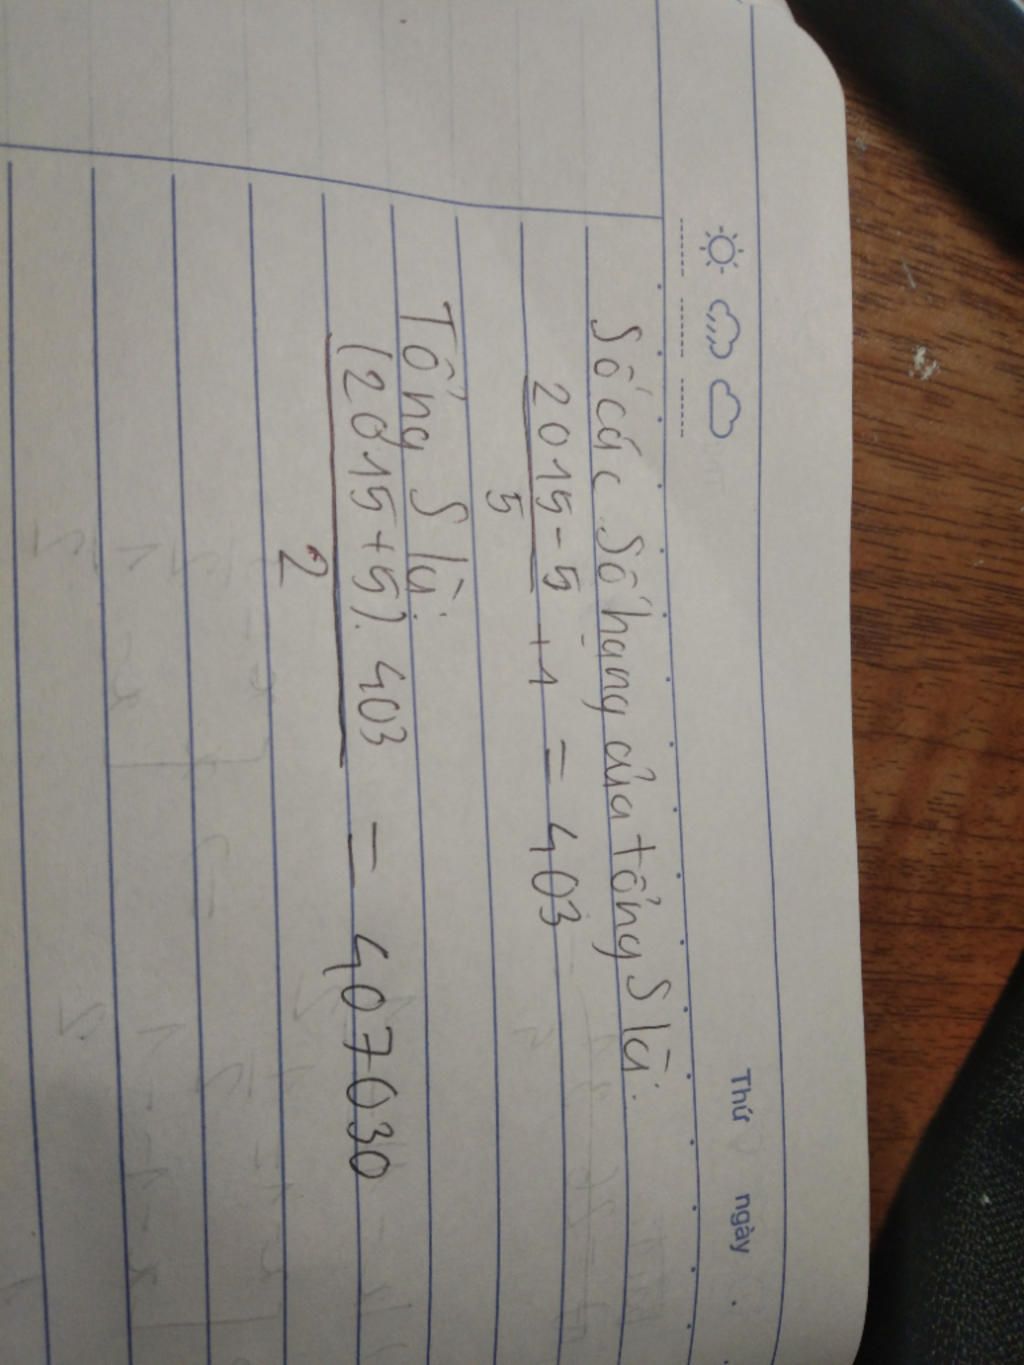 Thứ ngày
Số các số hạng của tổng S là:
2015-5 / 5 + 1 = 403
Tổng S là:
(2015+5). 403 / 2 = 407030